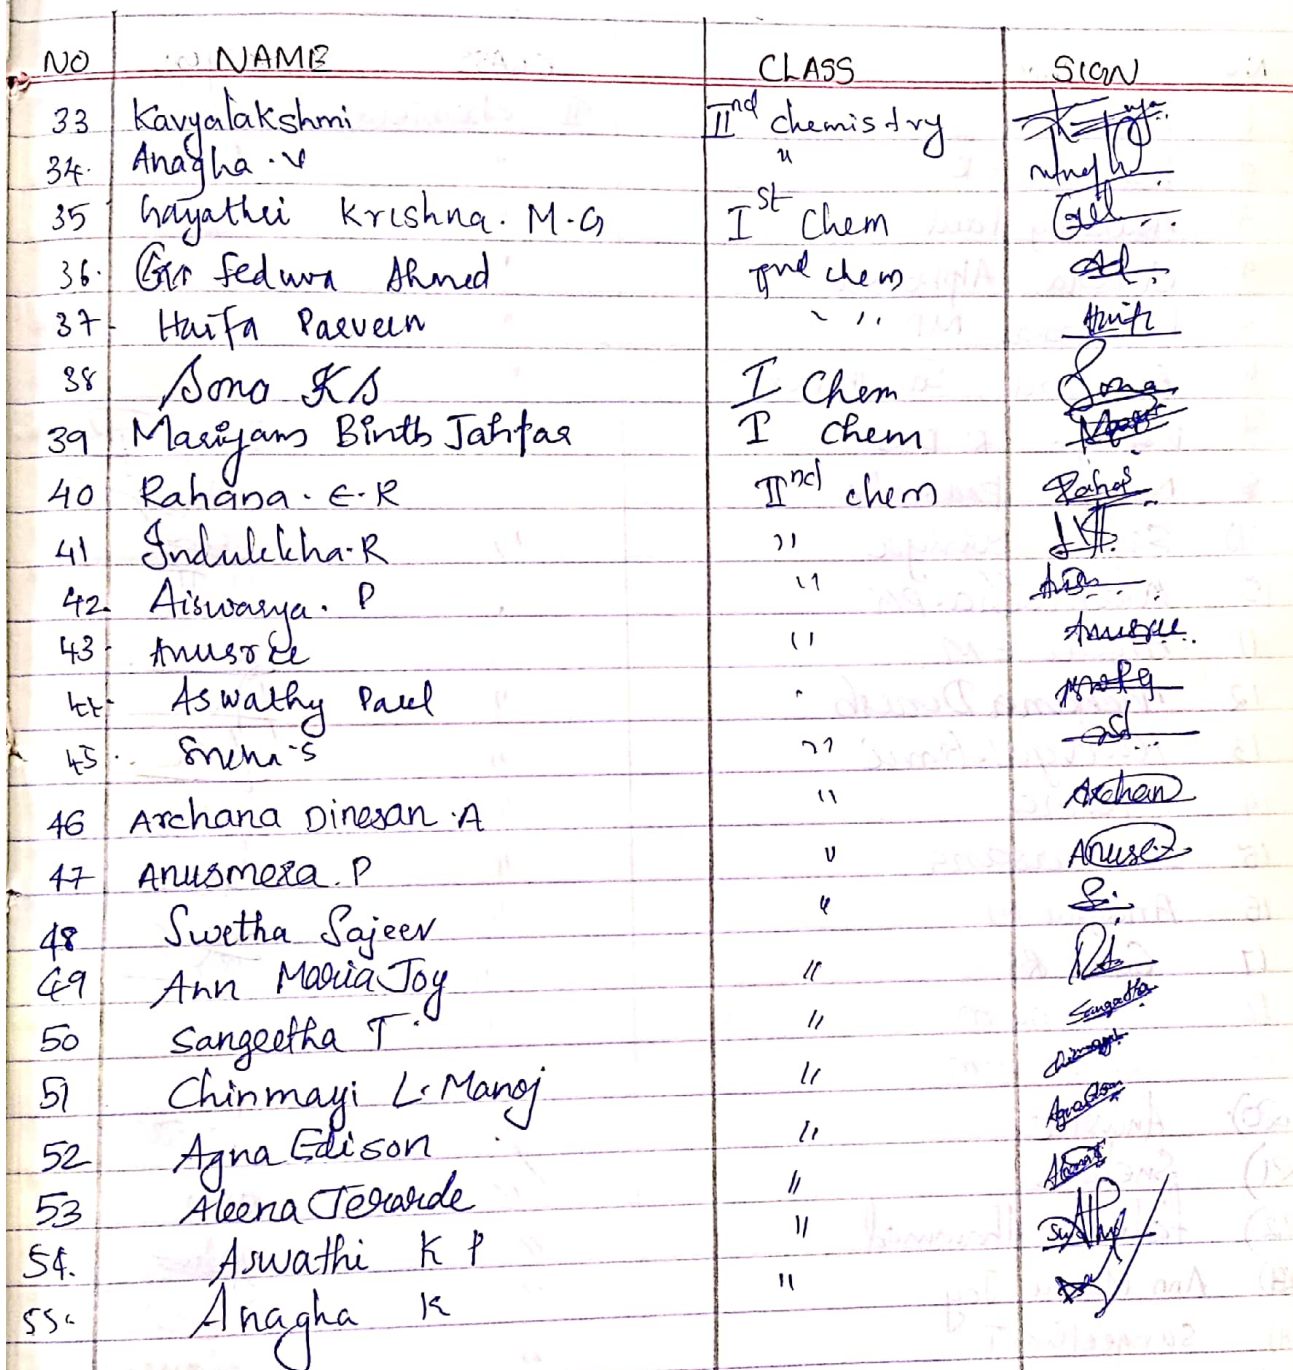 NO NAME CLASS SIGN
33 Kavyalakshmi IInd chemistry
34. Anagha . V "
35 Gayathri Krishna. M.G Ist Chem
36. Fedura Ahmed IInd chem
37. Haifa Parveen " Haifa
38 Sona KS I Chem Sona
39 Mariyam Binth Jahfar I chem
40 Rahana. E.R IInd chem Rahas
41 Indulekha.R "
42. Aiswarya. P "
43. Anusree " Anusree
44. Aswathy Paul "
45. Sneha S "
46 Archana Dinesan .A " Archan
47 Anusmera. P "
48 Swetha Sajeev "
49 Ann Maria Joy "
50 Sangeetha T. " Sangeetha
51 Chinmayi L. Manoj " Chinmayi
52 Agna Edison " Agna
53 Aleena Jerarde "
54. Aswathi K P "
55. Anagha K "